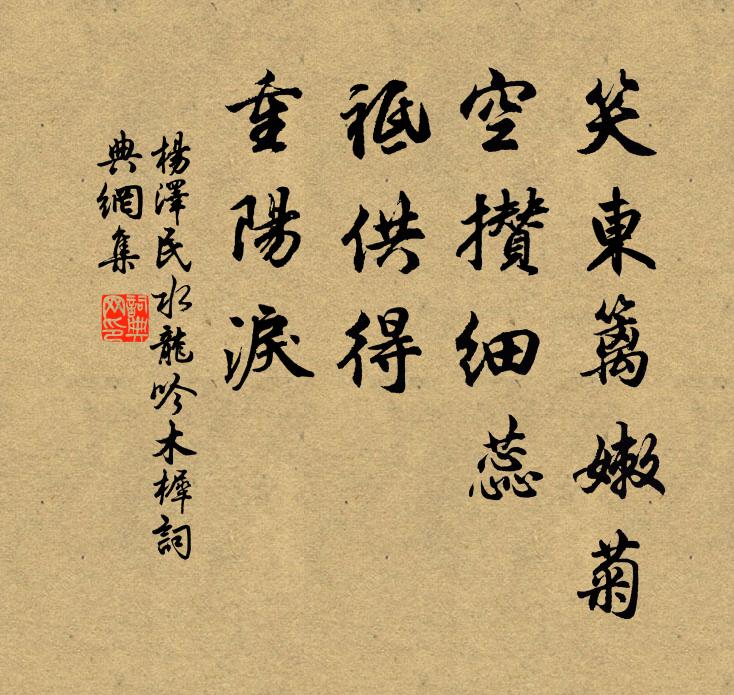 笑東籬嫩菊
空攢細蕊
祗供得
重陽淚
楊澤民水龍吟木樨詞
典網集
詞典網印